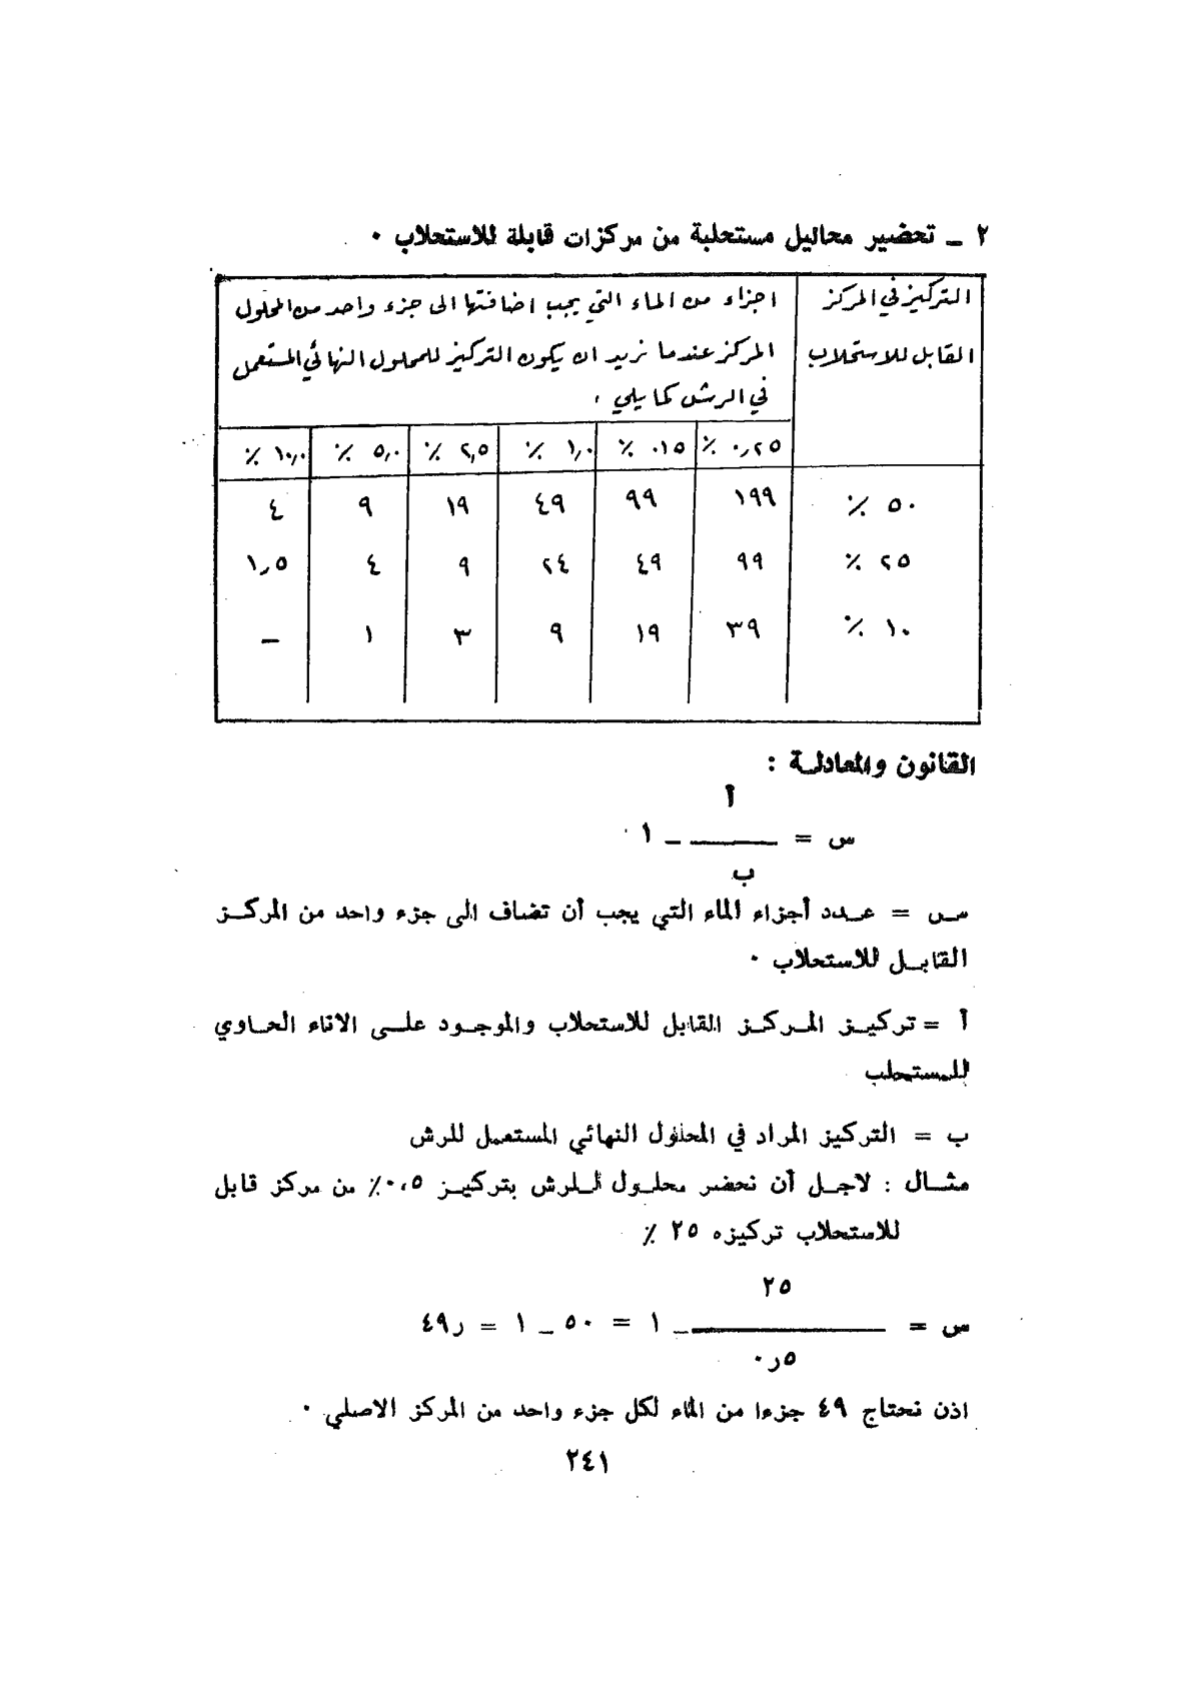 ٢ ـ تحضير محاليل مستحلبة من مركزات قابلة للاستحلاب ٠
التركيز في المركز
القابل للاستحلاب
اجزاء من الماء التي يجب اضافتها الى جزء واحد من المحلول
المركز عندما نريد ان يكون التركيز للمحلول النهائي المستعمل
في الرش كما يلي .
٠,٢٥ ٪ ٠١٥ ٪ ١,٠ ٪ ٢,٥ ٪ ٥,٠ ٪ ١٠,٠ ٪
٥٠ ٪ ١٩٩ ٩٩ ٤٩ ١٩ ٩ ٤
٢٥ ٪ ٩٩ ٤٩ ٢٤ ٩ ٤ ١,٥
١٠ ٪ ٣٩ ١٩ ٩ ٣ ١ ـ
القانون والمعادلـة :
أ
س = ــــــــ ـ ١
ب
س = عـدد أجزاء الماء التي يجب أن تضاف الى جزء واحد من المركـز
القابـل للاستحلاب ٠
أ = تركيـز المـركـز القابل للاستحلاب والموجـود علـى الاناء الحـاوي
للمستحلب
ب = التركيز المراد في المحلول النهائي المستعمل للرش
مثـال : لاجـل أن نحضر محلـول للـرش بتركيـز ٠،٥٪ من مركز قابل
للاستحلاب تركيزه ٢٥ ٪
٢٥
س = ــــــــــــ ـ ١ = ٥٠ ـ ١ = ر٤٩
٥ر٠
اذن نحتاج ٤٩ جزءا من الماء لكل جزء واحد من المركز الاصلي ٠
٢٤١